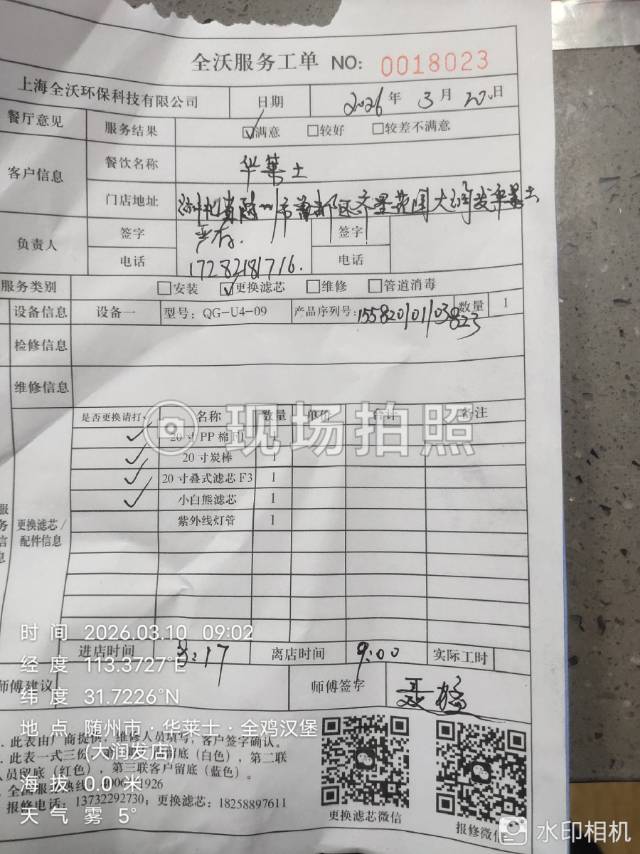 全沃服务工单 NO: 0018023
上海全沃环保科技有限公司 日期 2026年 3月 20日
餐厅意见 服务结果 ☑满意 □较好 □较差不满意
客户信息 餐饮名称 华莱士
门店地址 大润发华莱士
负责人 签字 签字
电话 17282181716. 电话
服务类别 □安装 ☑更换滤芯 □维修 □管道消毒
设备信息 设备一 型号: QG-U4-09 产品序列号: 数量 1
检修信息
维修信息
是否更换请打√ 名称 数量 单价 合计 备注
✓ 20寸PP棉 1
✓ 20寸炭棒 1
✓ 20寸叠式滤芯F3 1
✓ 小白熊滤芯 1
紫外线灯管 1
更换滤芯/
配件信息
现场拍照
进店时间 8:17 离店时间 9:00 实际工时
师傅建议 师傅签字
时间 2026.03.10 09:02
经度 113.3727°E
纬度 31.7226°N
地点 随州市·华莱士·全鸡汉堡
(大润发店)
海拔 0.0米
天气 雾 5°
此表由厂商提供,维修人员填写,客户签字确认。
此表一式三份 底(白色),第二联
人员留底(红色),第三联客户留底(蓝色)。
1926
报修电话: 13732292730; 更换滤芯: 18258897611
更换滤芯微信 报修微信
水印相机